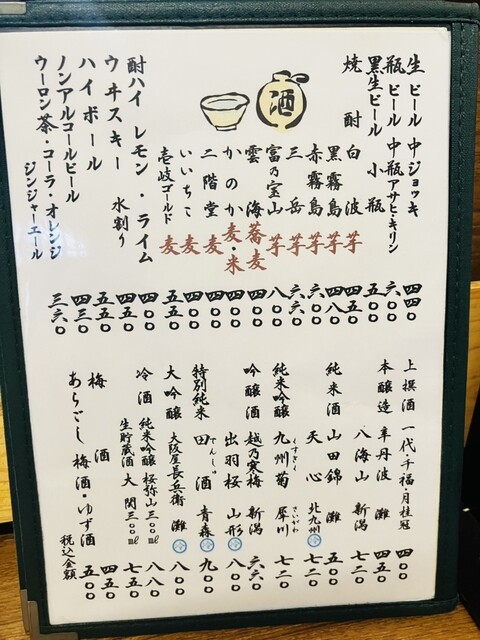 生ビール 中ジョッキ 四四〇
瓶ビール 中瓶 アサヒ・キリン 六〇〇
黒生ビール 小瓶 五〇〇
焼酎 白波 芋 四五〇
黒霧島 芋 四八〇
赤霧島 芋 六〇〇
三岳 芋 六六〇
富乃宝山 芋 八〇〇
雲海 蕎麦 四〇〇
かのか 麦・米 四〇〇
二階堂 麦 四〇〇
いいちこ 麦 四〇〇
壱岐ゴールド 麦 五五〇
酒
酎ハイ レモン・ライム 四〇〇
ウヰスキー 水割り 四五〇
ハイボール 五五〇
ノンアルコールビール 四三〇
ウーロン茶・コーラ・オレンジ
ジンジャーエール 三六〇
上撰酒 一代 千福・月桂冠 四〇〇
本醸造 辛丹波 灘 四五〇
八海山 新潟 七二〇
純米酒 山田錦 灘 五〇〇
天心 北九州 冷 七二〇
純米吟醸 九州菊 犀川 さいがわ 七二〇
吟醸酒 越乃寒梅 新潟 六六〇
出羽桜 山形 冷 八〇〇
特別純米 田酒 でんしゅ 青森 冷 九〇〇
大吟醸 大阪屋長兵衛 灘 冷 八〇〇
冷酒 純米吟醸 桜弥山 三〇〇ml 八八〇
生貯蔵酒 大関 三〇〇ml 七五〇
梅酒 四五〇
あらごし 梅酒・ゆず酒 五〇〇
税込金額